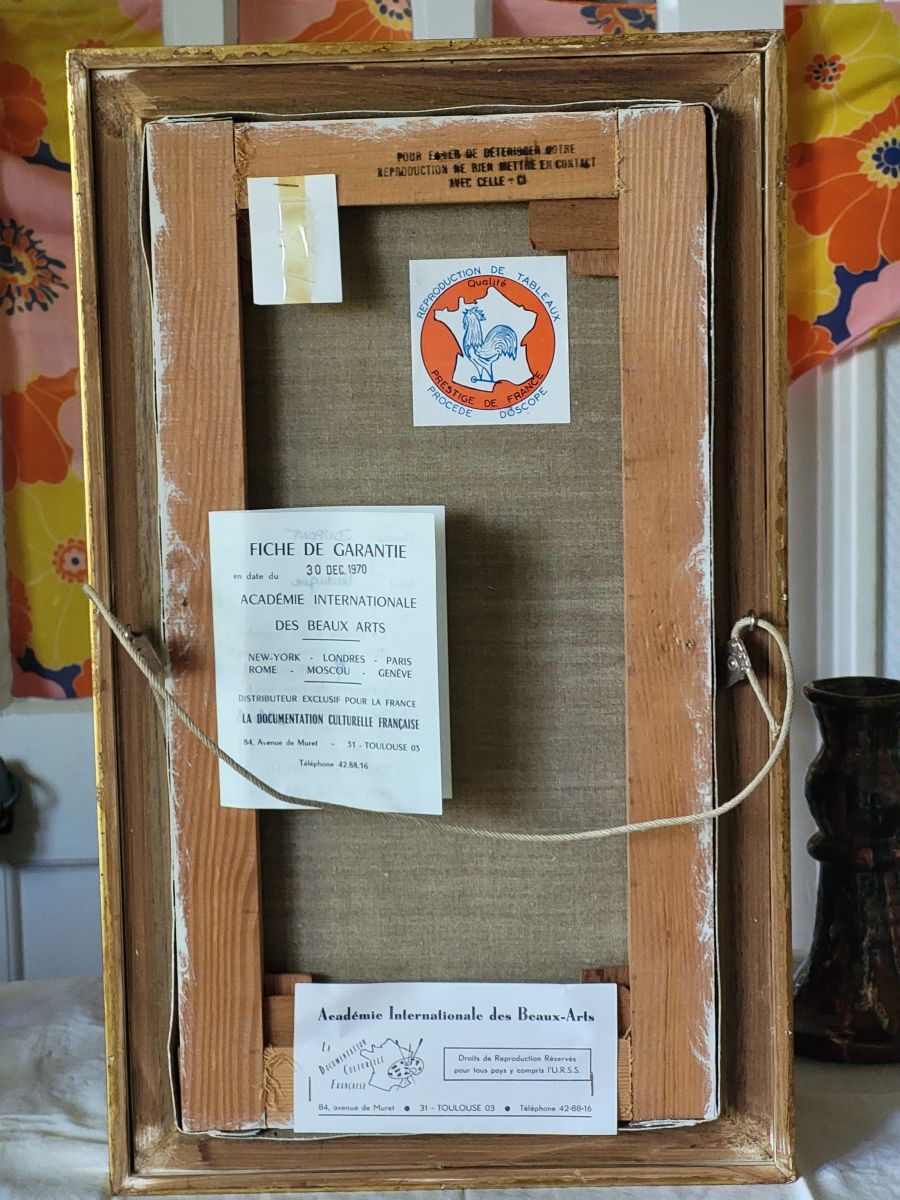 POUR EVITER DE DÉTERIORER VOTRE
REPRODUCTION NE RIEN METTRE EN CONTACT
AVEC CELLE-CI
REPRODUCTION DE TABLEAUX
Qualité
PRESTIGE DE FRANCE
PROCEDE DOSCOPE
DUPONT
FICHE DE GARANTIE
en date du 30 DEC. 1970
ACADÉMIE INTERNATIONALE
DES BEAUX ARTS
NEW-YORK - LONDRES - PARIS
ROME - MOSCOU - GENÈVE
DISTRIBUTEUR EXCLUSIF POUR LA FRANCE
LA DOCUMENTATION CULTURELLE FRANÇAISE
84, Avenue de Muret - 31 - TOULOUSE 03
Téléphone 42.88.16
Académie Internationale des Beaux-Arts
La
Documentation
Culturelle
Française
Droits de Reproduction Réservés
pour tous pays y compris l'U.R.S.S.
84, avenue de Muret ● 31 - TOULOUSE 03 ● Téléphone 42-88-16